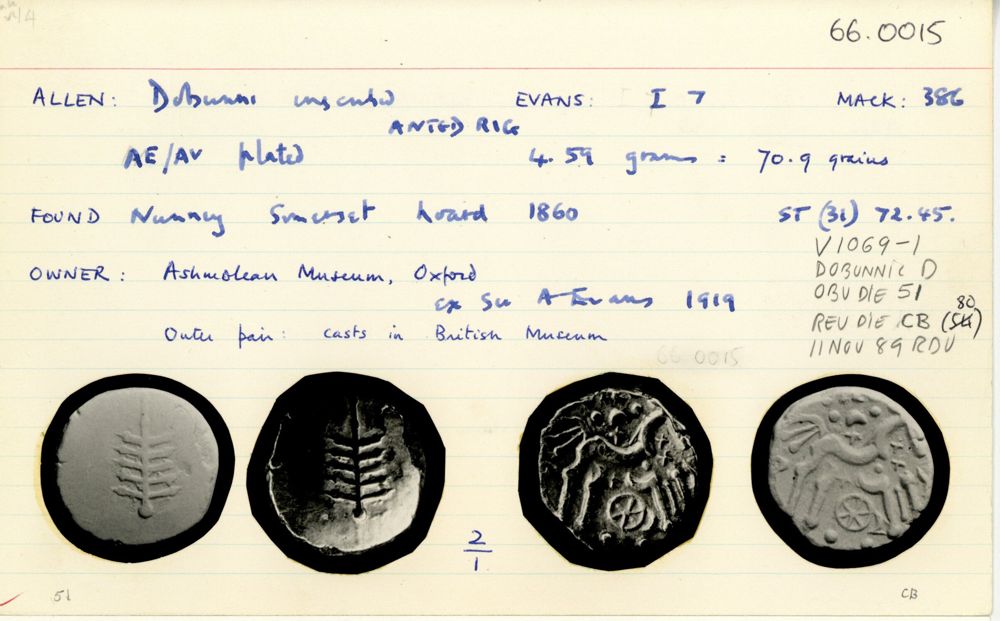 66.0015
ALLEN: Dobunni inscribed EVANS: I 7 MACK: 386
ANTED RIG
AE/AV plated 4.59 grams = 70.9 grains
FOUND Nunney Somerset hoard 1860 ST (31) 72.45.
V1069-1
OWNER: Ashmolean Museum, Oxford DOBUNNIC D
ex Sir A Evans 1919 OBV DIE 51
80
Outer pair: casts in British Museum REV DIE CB (54)
11 NOV 89 RDV
66.0015
2
1
51 CB